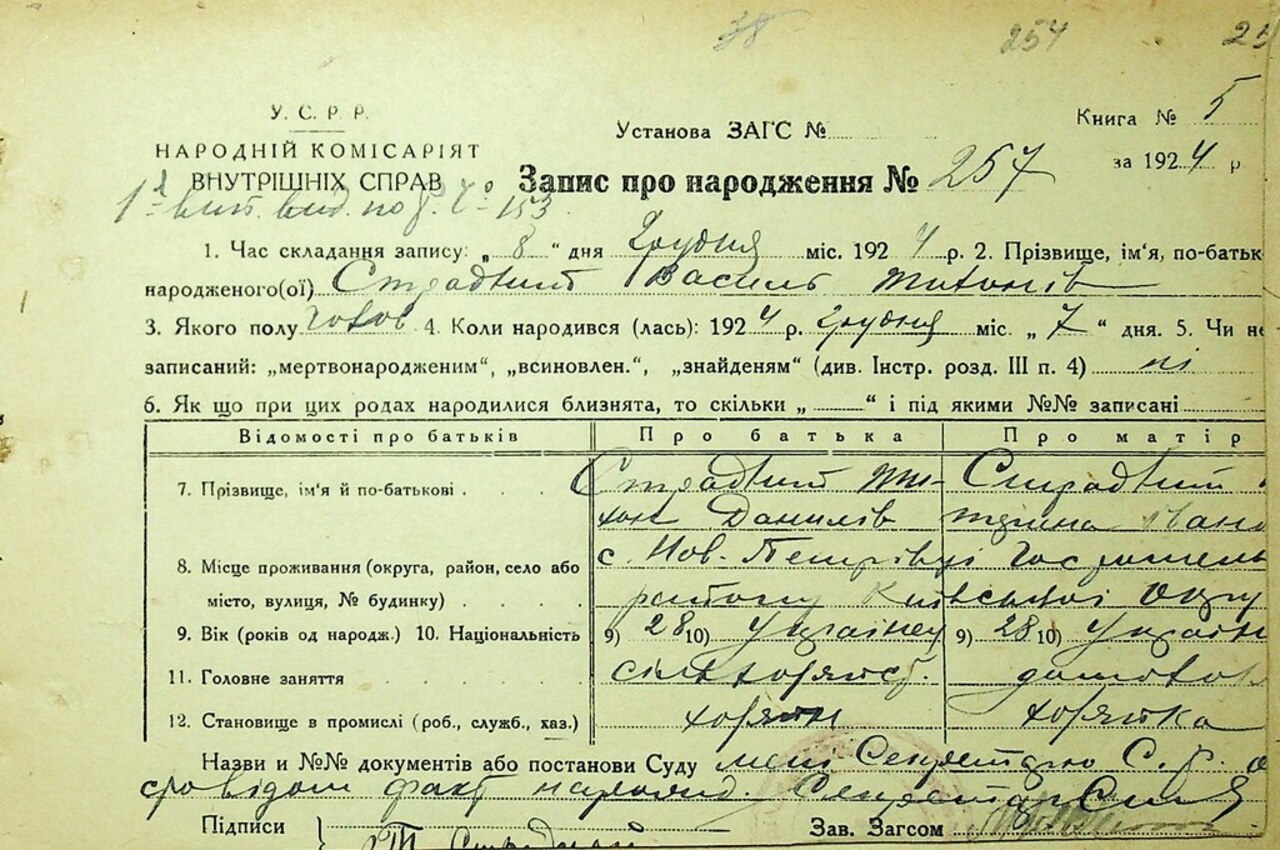 38 254 25
У. С. Р. Р.
НАРОДНІЙ КОМІСАРІЯТ
ВНУТРІШНІХ СПРАВ
Установа ЗАГС №
Книга № 5
за 1924 р
Запис про народження № 257
1. Час складання запису: „ 8 “ дня Грудня міс. 1924 р. 2. Прізвище, ім'я, по-батьк
народженого(ої) Страдний Василь Тихонів
3. Якого полу чолов 4. Коли народився (лась): 1924 р. Грудня міс. „ 7 “ дня. 5. Чи не
записаний: „мертвонародженим“, „всиновлен.“, „знайденям“ (див. Інстр. розд. III п. 4) ні
6. Як що при цих родах народилися близнята, то скільки „ “ і під якими №№ записані
Відомості про батьків Про батька Про матір
7. Прізвище, ім'я й по-батькові Страдний Ти- Страдний
хон Данилів Івано
8. Місце проживання (округа, район, село або с. Нов.-Петрівці Гостомель
місто, вулиця, № будинку) району Київської Окру
9. Вік (років од народж.) 10. Національність 9) 28 10) Українец 9) 28 10) Україн
11. Головне заняття домов
12. Становище в промислі (роб., служб., хаз.)
Назви и №№ документів або постанови Суду мені Секретарю С. Р.
факт Секретар
Підписи Зав. Загсом
Страдний